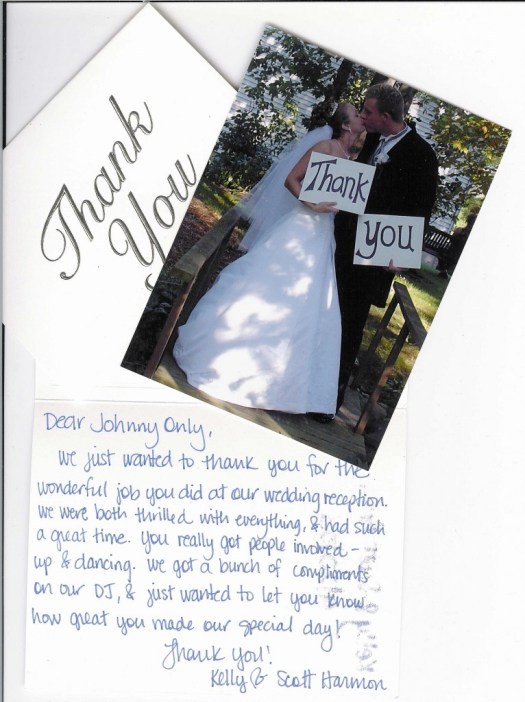 Thank
You
Thank
you
Dear Johnny Only,
We just wanted to thank you for the
wonderful job you did at our wedding reception.
We were both thrilled with everything, & had such
a great time. You really got people involved -
up & dancing. We got a bunch of compliments
on our DJ, & just wanted to let you know
how great you made our special day!
Thank you!
Kelly & Scott Harmon